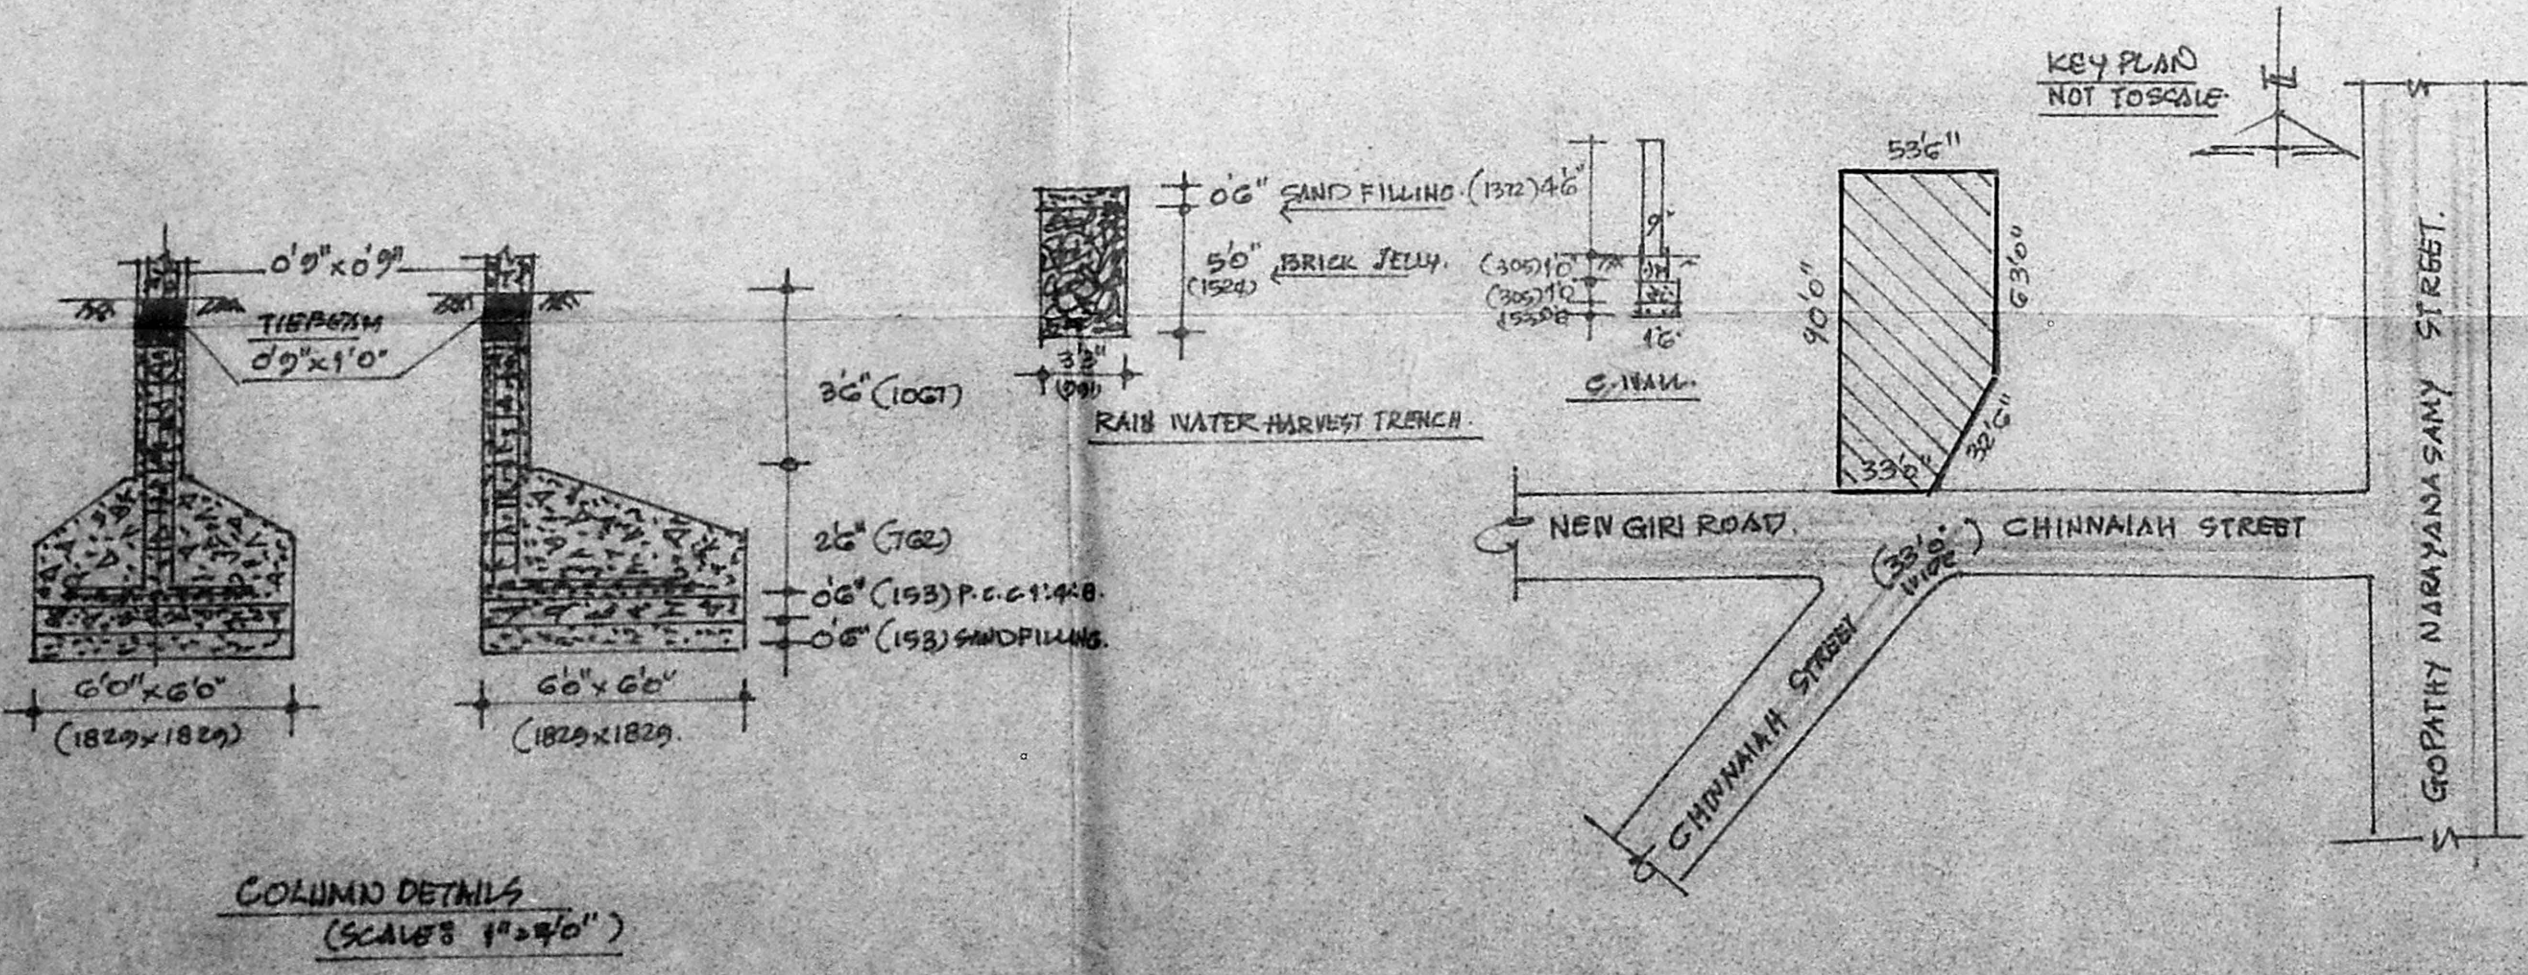 0'9"x0'9"
TIE BEAM
0'9"x1'0"
3'6" (1067)
2'6" (762)
0'6" (153) P.C.C 1:4:8.
0'6" (153) SANDFILLING.
6'0"x6'0"
(1829x1829)
6'0"x6'0"
(1829x1829.
COLUMN DETAILS
0'6" SAND FILLING.
5'0" BRICK JELLY.
(1524)
3'3"
(991)
RAIN WATER HARVEST TRENCH.
(1372) 4'6"
9"
(305) 1'0"
(305) 1'0"
1'6"
C.WALL.
KEY PLAN
NOT TO SCALE.
53'6"
90'0"
63'0"
32'6"
33'0"
NEW GIRI ROAD.
(33'0" WIDE)
CHINNAIAH STREET
CHINNAIAH STREET
GOPATHY NARAYANASAMY STREET.